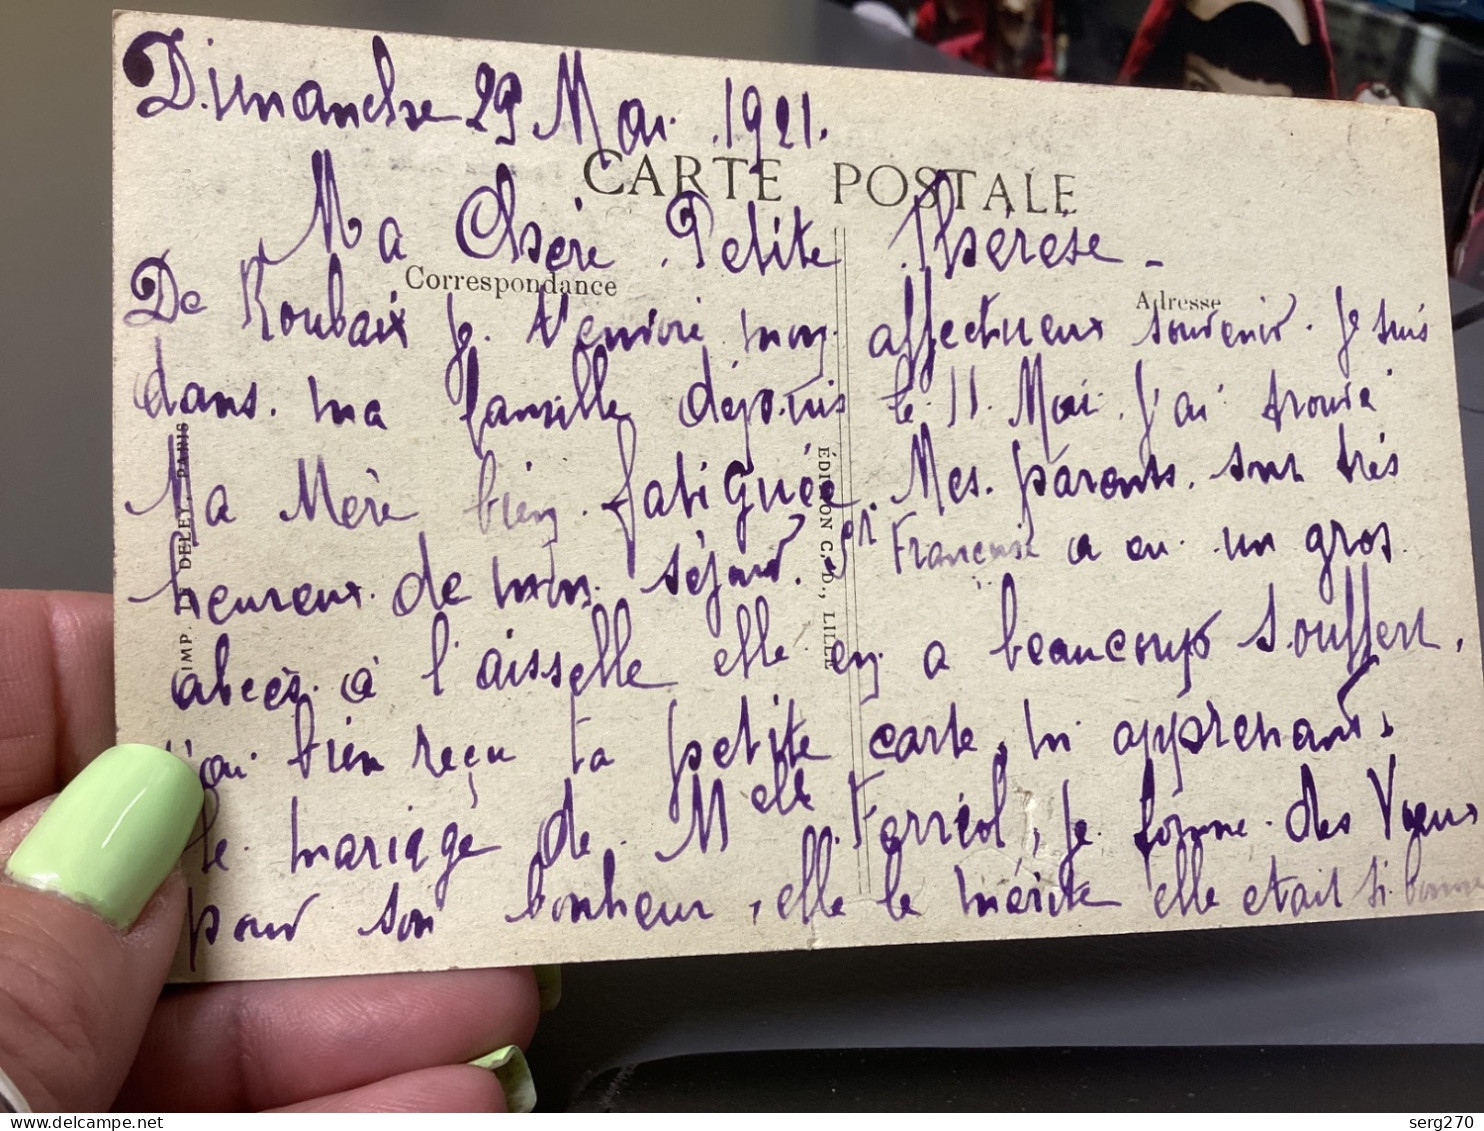 Dimanche 29 Mai 1921.
CARTE POSTALE
Ma Chère Petite Thérèse -
Correspondance
Adresse
De Roubaix je t'envoie mon affectueux souvenir. Je suis
dans ma famille dépuis le 11 Mai. J'ai trouvé
Ma Mère bien fatiguée. Mes parents sont très
heureux de mon séjour. Sr Françoise a eu un gros
abcès à l'aisselle elle en a beaucoup souffert.
J'ai bien reçu ta petite carte, m'apprenant
le mariage de Melle Ferréol, je forme des Vœux
pour son bonheur, elle le mérite elle était si bonne
IMP. LE DELEY, PARIS
ÉDITION C. D., LILLE
serg270